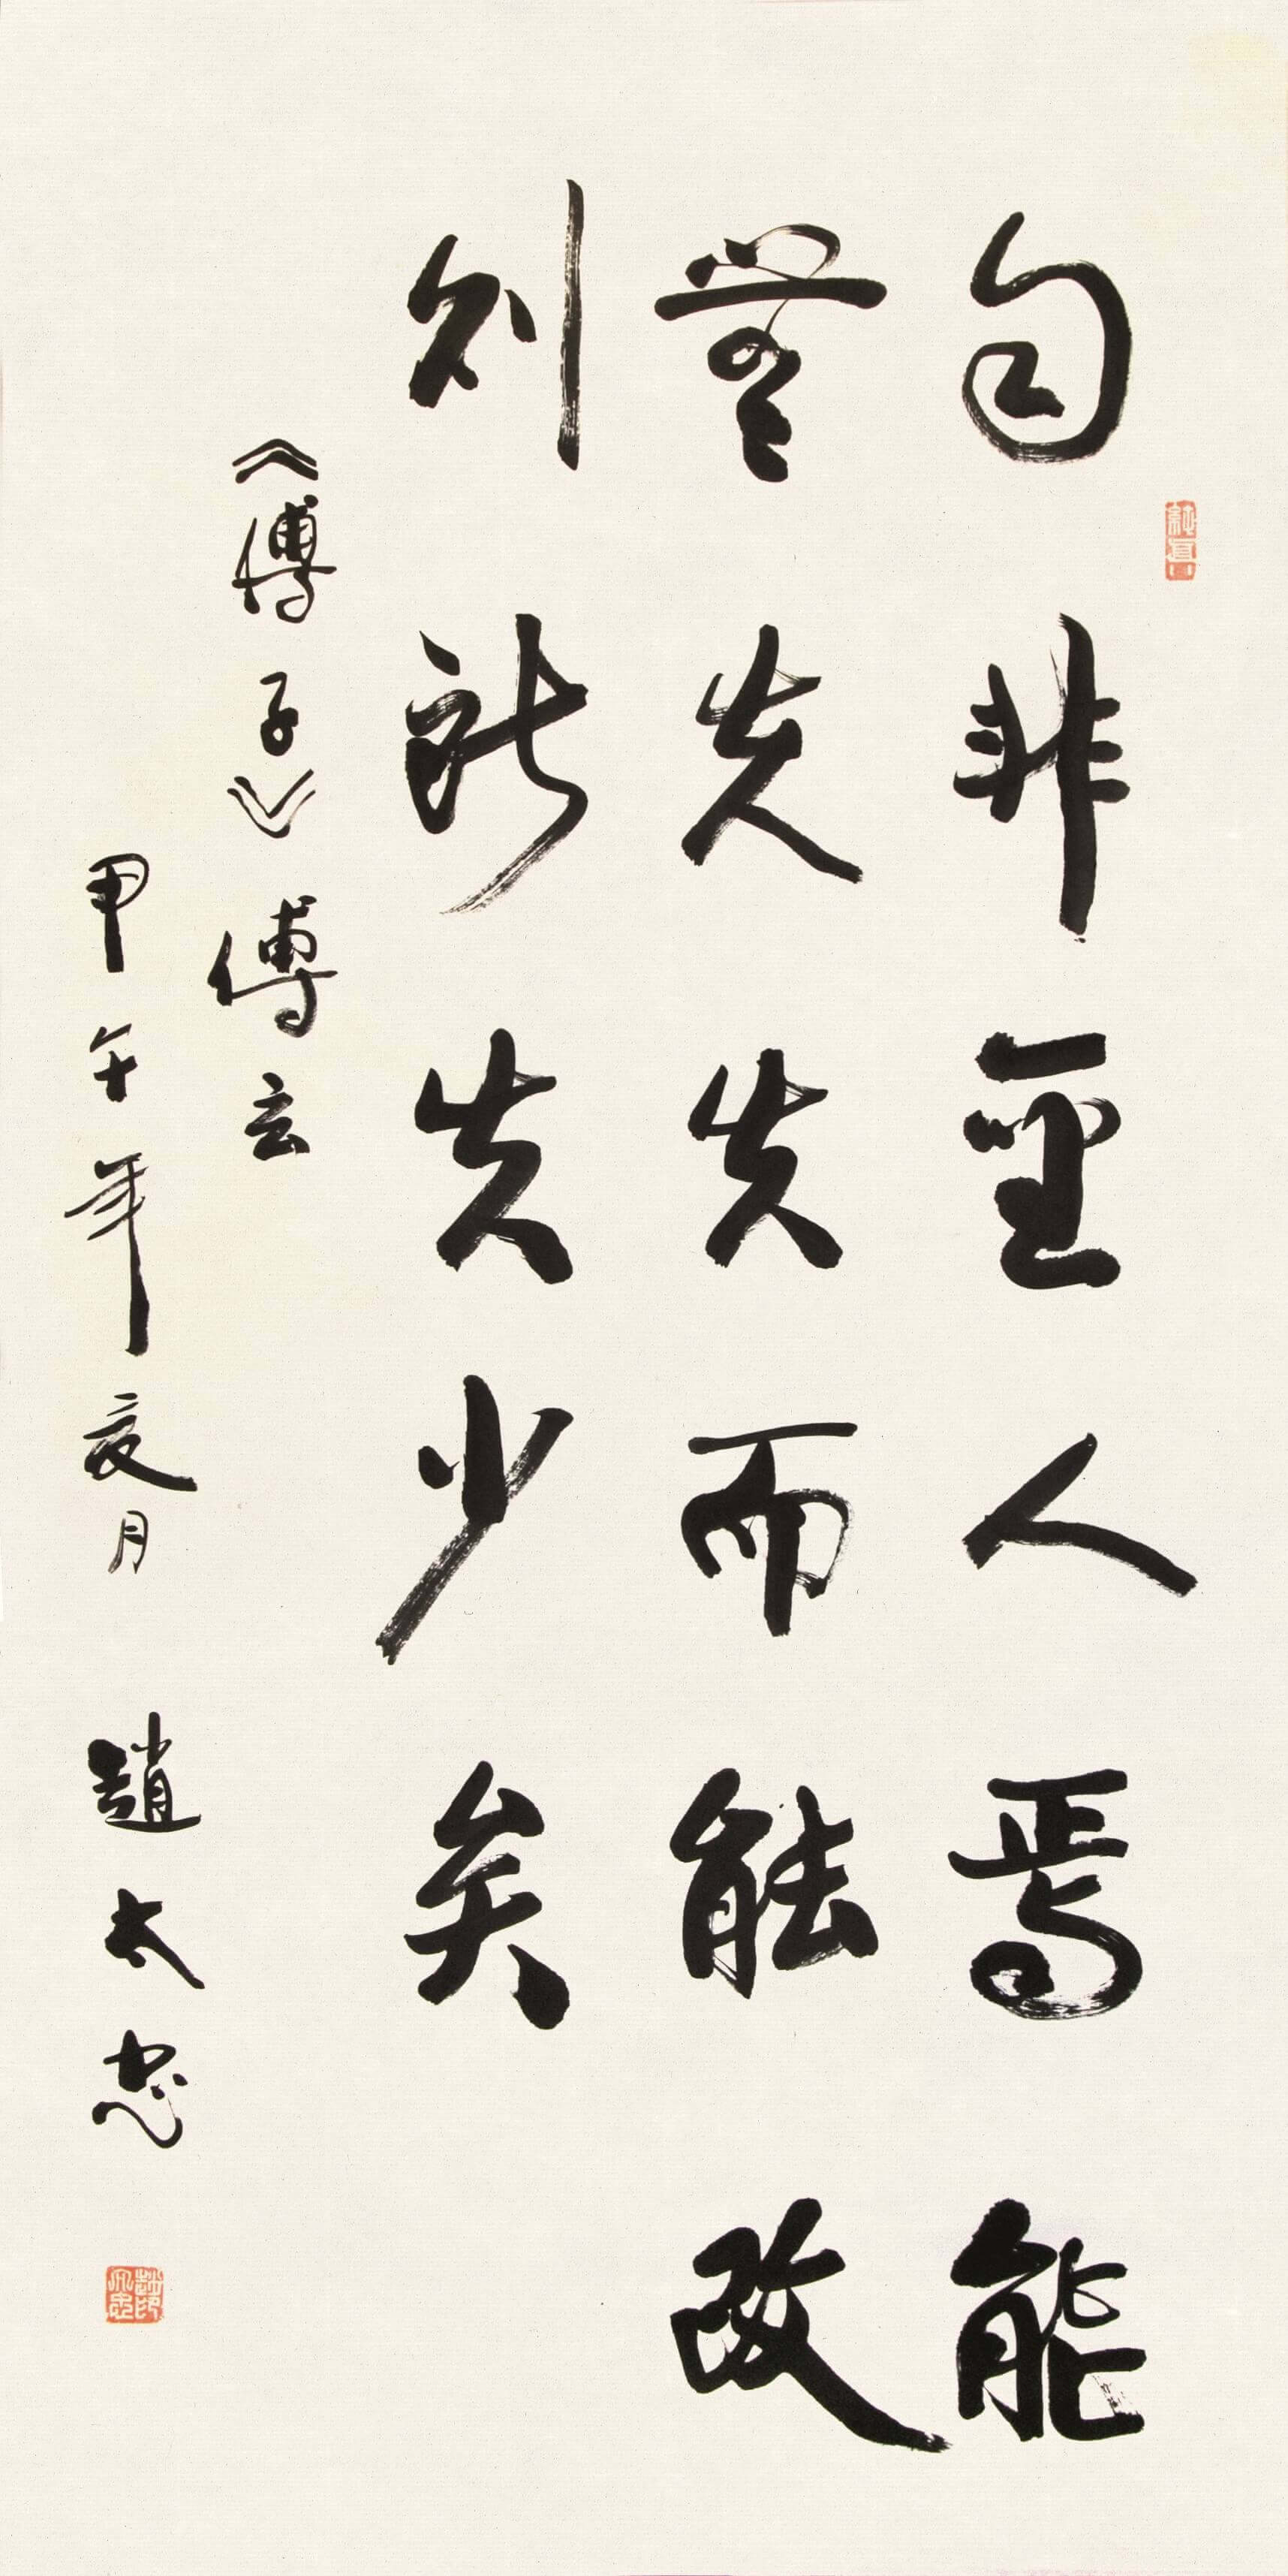 自非聖人焉能
無失失而能改
則所失少矣
《傅子》傅玄
甲午年夏月 趙太忠